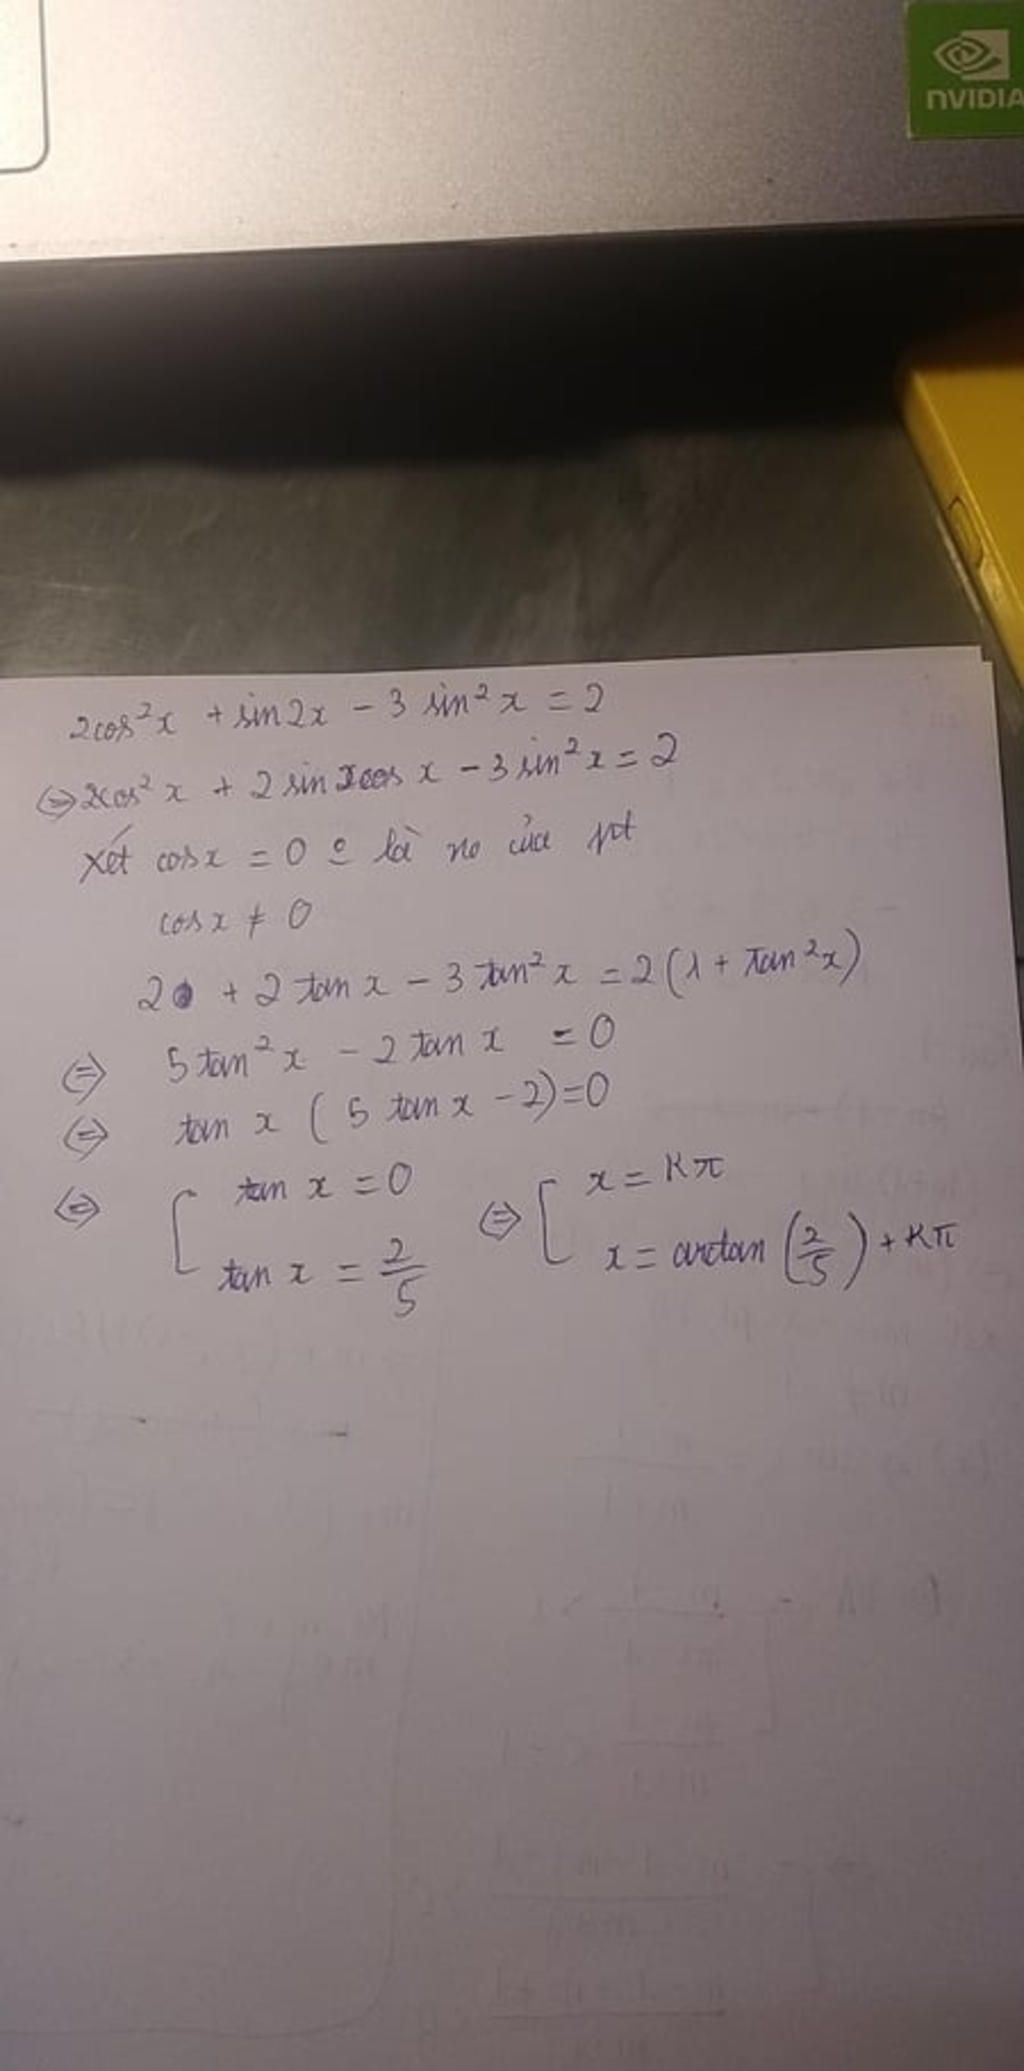 NVIDIA
2cos²x + sin2x - 3 sin²x = 2
⇔ 2cos²x + 2 sin x cos x - 3 sin²x = 2
Xét cosx = 0 là no của pt
cosx ≠ 0
2 + 2 tan x - 3 tan²x = 2(1 + tan²x)
⇔ 5 tan²x - 2 tan x = 0
⇔ tan x (5 tan x - 2) = 0
⇔ [ tan x = 0 ⇔ [ x = kπ
tan x = 2/5 x = arctan (2/5) + kπ